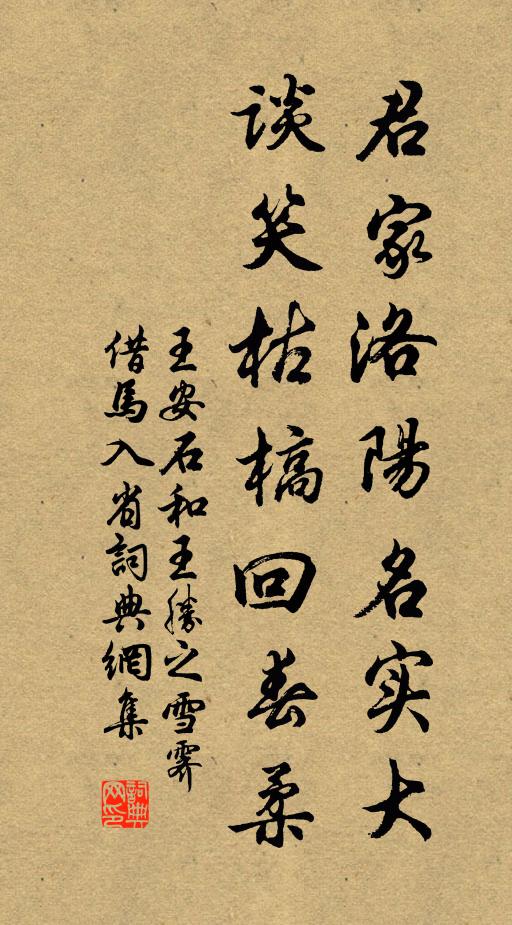 君家洛陽名实大
談笑枯槁回春柔
王安石和王勝之雪霽
借馬入省詞典網集
詞典网印